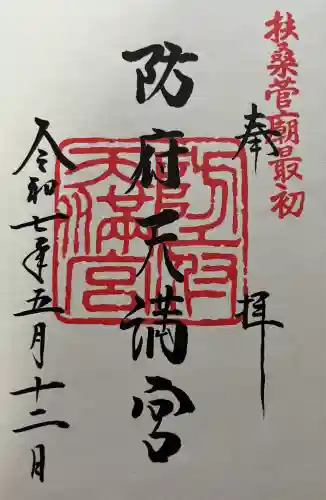 扶桑菅廟最初
奉拝
防府天満宮
防府天満宮
令和七年五月十二日